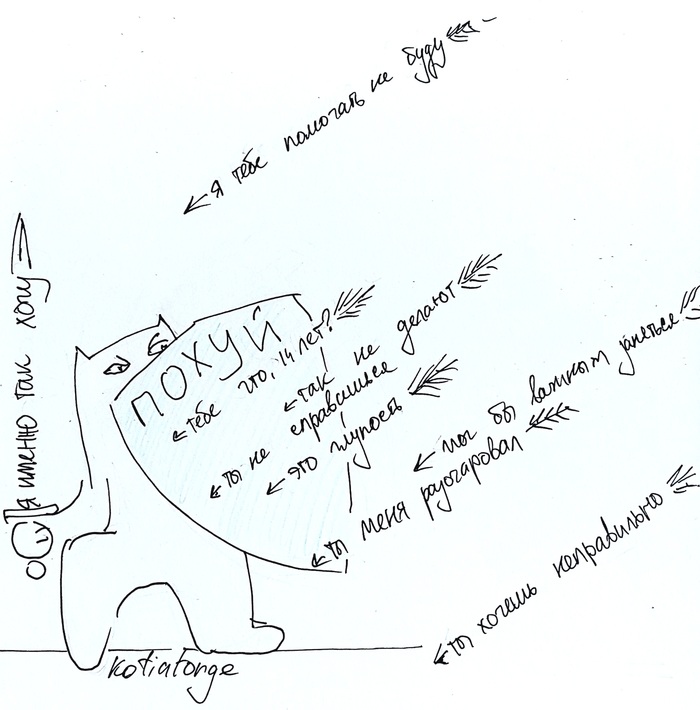 я тебе помогать не буду
я именно так хочу
ПОХУЙ
тебе что, 14 лет?
так не делают
ты не справишься
это глупость
мог бы важным заняться
ты меня разочаровал
ты хочешь неправильно
kotiatonge